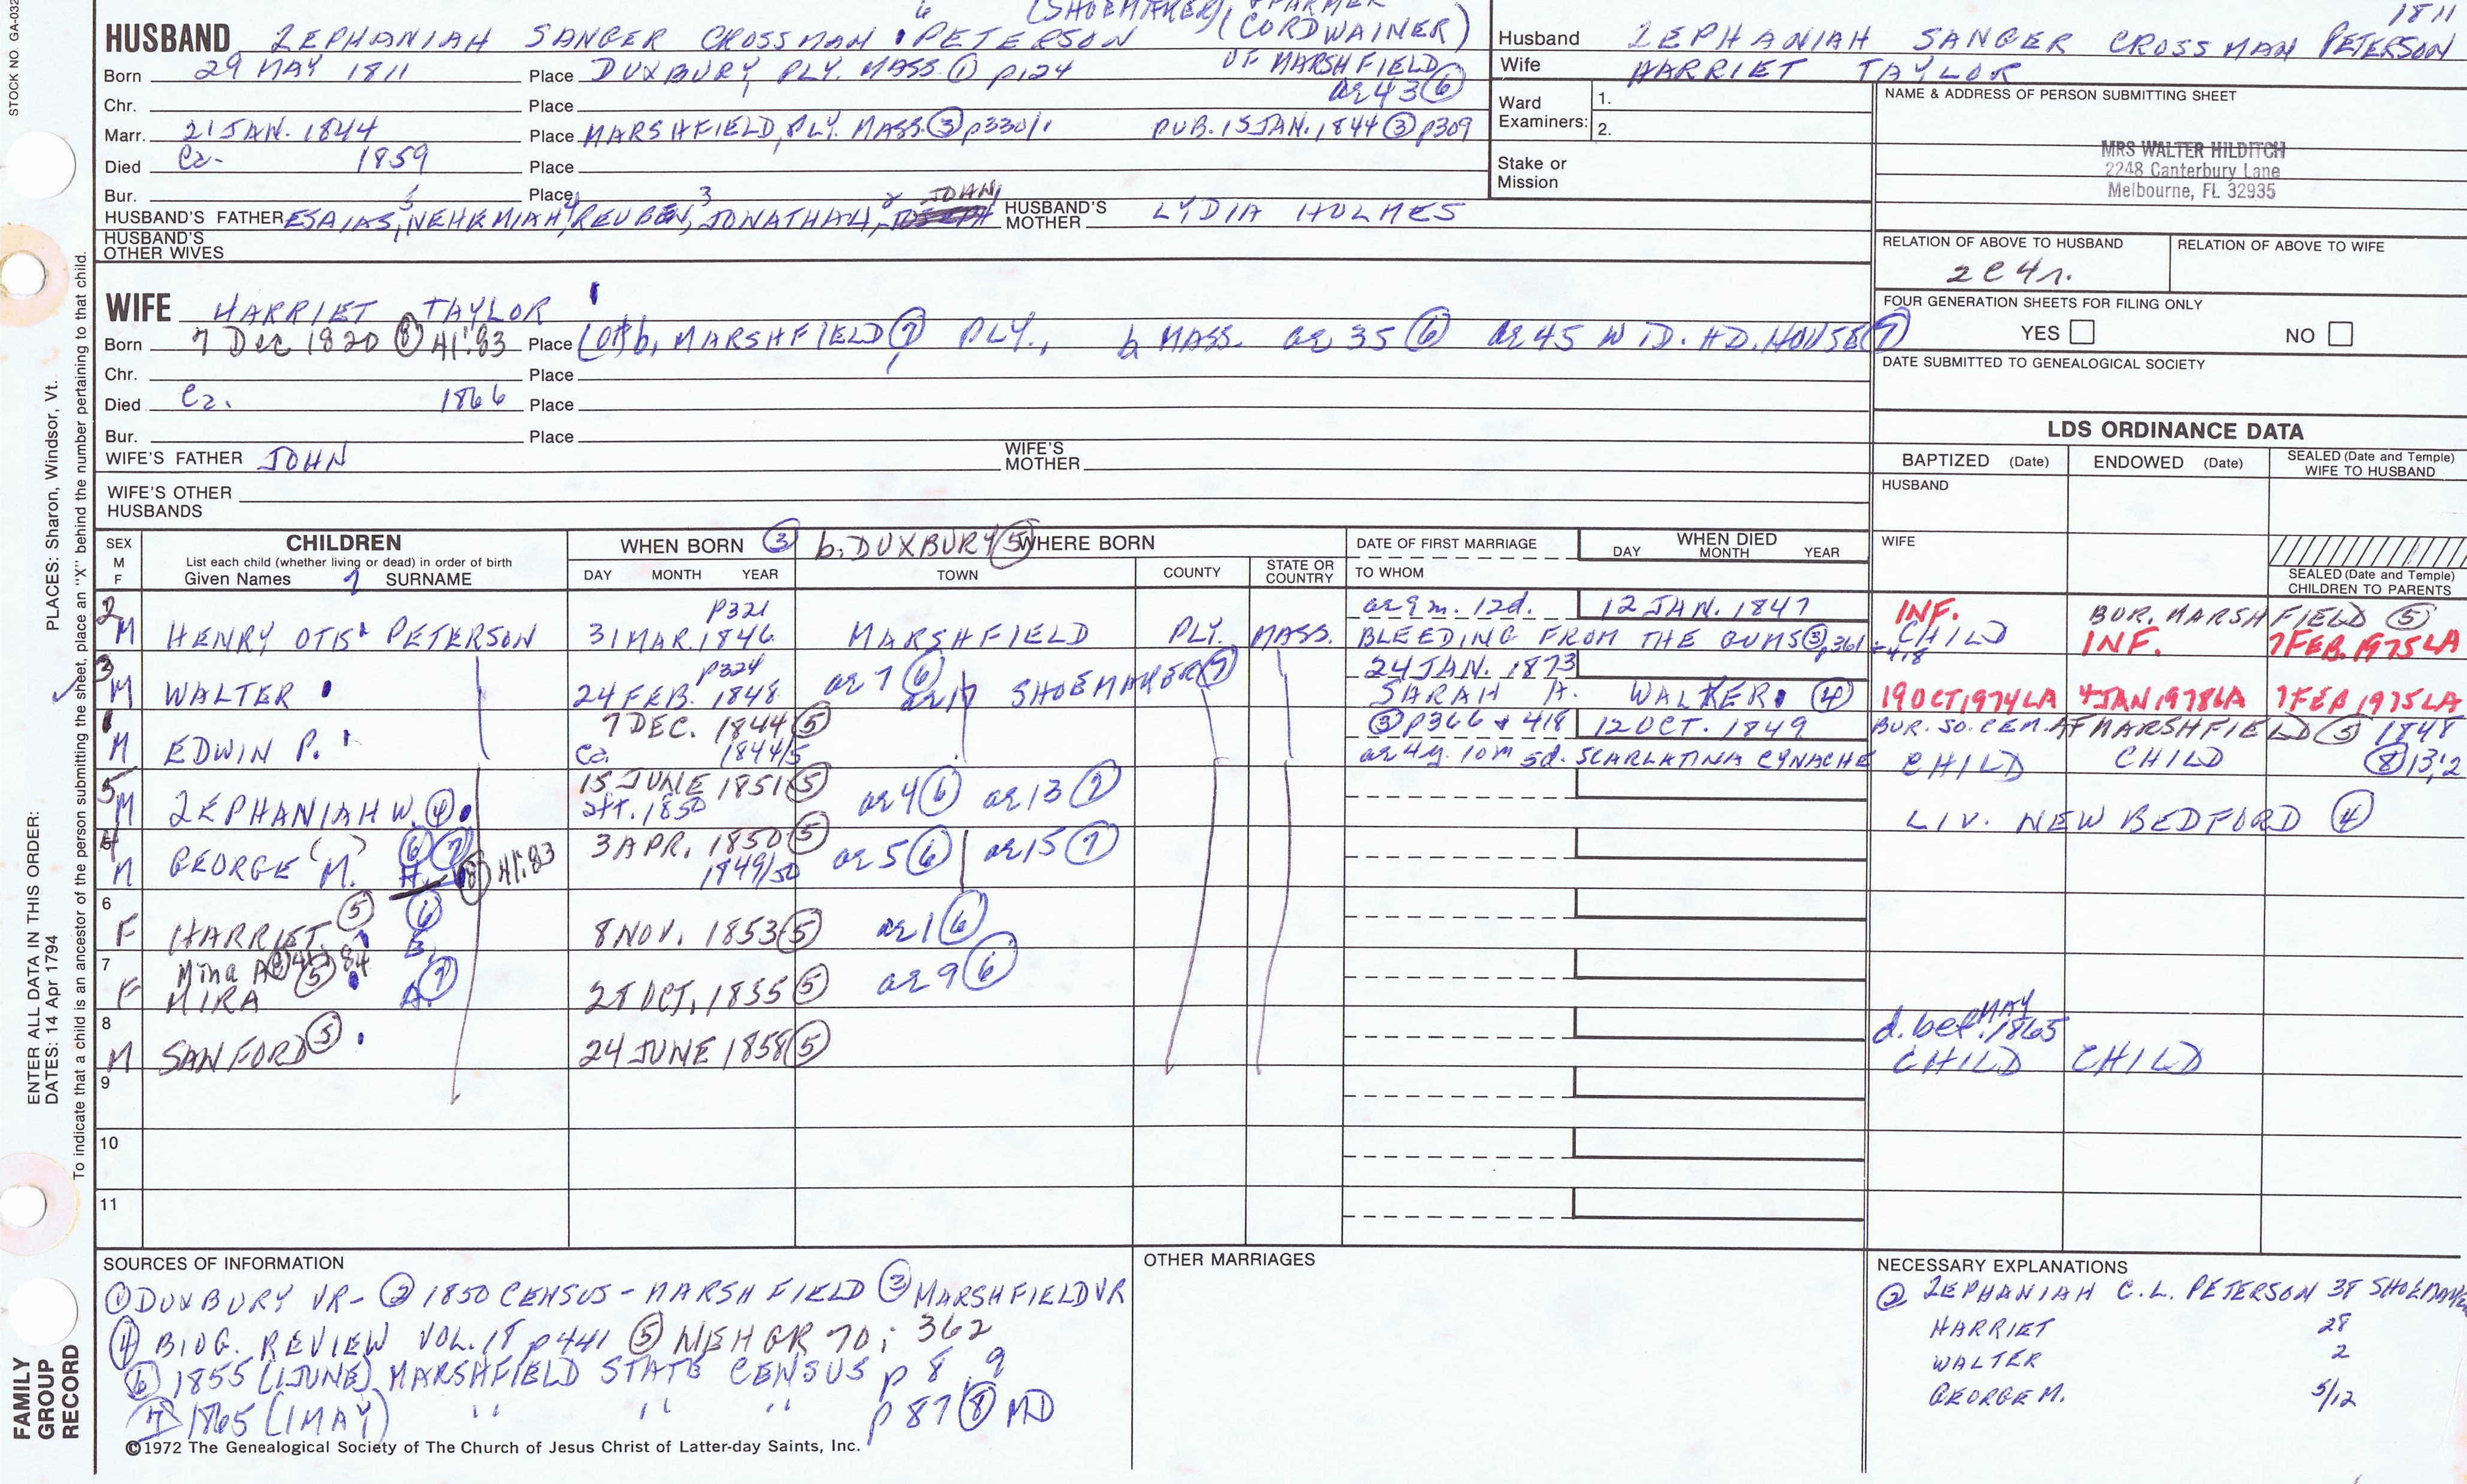 STOCK NO. GA-032
(SHOEMAKER), FARMER
HUSBAND ZEPHANIAH SANGER CROSSMAN 6 PETERSON (CORDWAINER)
Born 29 MAY 1811 Place DUXBURY PLY. MASS. ① p124 OF MARSHFIELD
Chr. Place ae 43 ⑥
Marr. 21 JAN. 1844 Place MARSHFIELD, PLY. MASS. ③ p330/1 PUB. 15 JAN. 1844 ③ p309
Died Ca. 1859 Place
Bur. Place
HUSBAND'S FATHER ESAIAS, 5 NEHEMIAH, 4 REUBEN, 3 JONATHAN, 2 JOHN HUSBAND'S MOTHER LYDIA HOLMES
HUSBAND'S OTHER WIVES
1811
Husband ZEPHANIAH SANGER CROSSMAN PETERSON
Wife HARRIET TAYLOR
Ward Examiners: 1.
2.
Stake or Mission
NAME & ADDRESS OF PERSON SUBMITTING SHEET
MRS WALTER HILDITCH
2248 Canterbury Lane
Melbourne, FL 32935
RELATION OF ABOVE TO HUSBAND RELATION OF ABOVE TO WIFE
2C4r.
FOUR GENERATION SHEETS FOR FILING ONLY
YES NO
DATE SUBMITTED TO GENEALOGICAL SOCIETY
WIFE HARRIET TAYLOR
Born 7 Dec 1820 ⑧ 41:83 Place (of) b, MARSHFIELD ⑦ PLY., b MASS. ae 35 ⑥ ae 45 WID. HD. HOUSE ⑦
Chr. Place
Died Ca. 1866 Place
Bur. Place
WIFE'S FATHER JOHN WIFE'S MOTHER
WIFE'S OTHER HUSBANDS
LDS ORDINANCE DATA
BAPTIZED (Date) ENDOWED (Date) SEALED (Date and Temple) WIFE TO HUSBAND
HUSBAND
WIFE
SEALED (Date and Temple) CHILDREN TO PARENTS
SEX M F CHILDREN
List each child (whether living or dead) in order of birth
Given Names SURNAME
WHEN BORN ③ b. DUXBURY ⑤ WHERE BORN
DAY MONTH YEAR TOWN COUNTY STATE OR COUNTRY
DATE OF FIRST MARRIAGE
TO WHOM
WHEN DIED
DAY MONTH YEAR
2 p321 ae 9 m. 12d. 12 JAN. 1847 INF. BUR. MARSHFIELD ⑤
M HENRY OTIS PETERSON 31 MAR. 1846 MARSHFIELD PLY. MASS. BLEEDING FROM THE GUMS ③ 361 + 418 CHILD INF. 7 FEB. 1975 LA
3 p324 24 JAN. 1873
M WALTER 24 FEB. 1848 ae 7 ⑥ ae 17 SHOEMAKER ⑦ SARAH A. WALKER ④ 19 OCT 1974 LA 4 JAN 1978 LA 7 FEB 1975 LA
1 7 DEC. 1844 ⑤ ③ p366 + 418 12 OCT. 1849 BUR. SO. CEM. MARSHFIELD ⑤ 1848
M EDWIN P. Ca. 1844/5 ae 4y. 10m 5d. SCARLATINA CYNACHE CHILD CHILD ⑧ 13:2
5 15 JUNE 1851 ⑤
M ZEPHANIAH W. ④ aft. 1850 ae 4 ⑥ ae 13 ⑦ LIV. NEW BEDFORD ④
4 3 APR. 1850 ⑤
M GEORGE "M." ⑥ ⑦ H. ⑧ 41:83 1849/50 ae 5 ⑥ ae 15 ⑦
6
F HARRIET ⑤ E. ⑥ 8 NOV. 1853 ⑤ ae 1 ⑥
7 Mina A
F MIRA ⑤ A. ⑦ 28 OCT. 1855 ⑤ ae 9 ⑥
8 d. bef. MAY 1865
M SANFORD ⑤ 24 JUNE 1858 ⑤ CHILD CHILD
9
10
11
SOURCES OF INFORMATION
① DUXBURY VR- ② 1850 CENSUS - MARSHFIELD ③ MARSHFIELD VR
④ BIOG. REVIEW VOL. 18 p441 ⑤ NEHGR 70; 362
⑥ 1855 (1 JUNE) MARSHFIELD STATE CENSUS p 8, 9
⑦ 1865 (1 MAY) " " " p 87 ⑧ MD
©1972 The Genealogical Society of The Church of Jesus Christ of Latter-day Saints, Inc.
OTHER MARRIAGES
NECESSARY EXPLANATIONS
② ZEPHANIAH C.L. PETERSON 38 SHOEMAKER
HARRIET 28
WALTER 2
GEORGE M. 5/12
PLACES: Sharon, Windsor, Vt.
To indicate that a child is an ancestor of the person submitting the sheet, place an "X" behind the number pertaining to that child.
ENTER ALL DATA IN THIS ORDER:
DATES: 14 Apr 1794
FAMILY GROUP RECORD